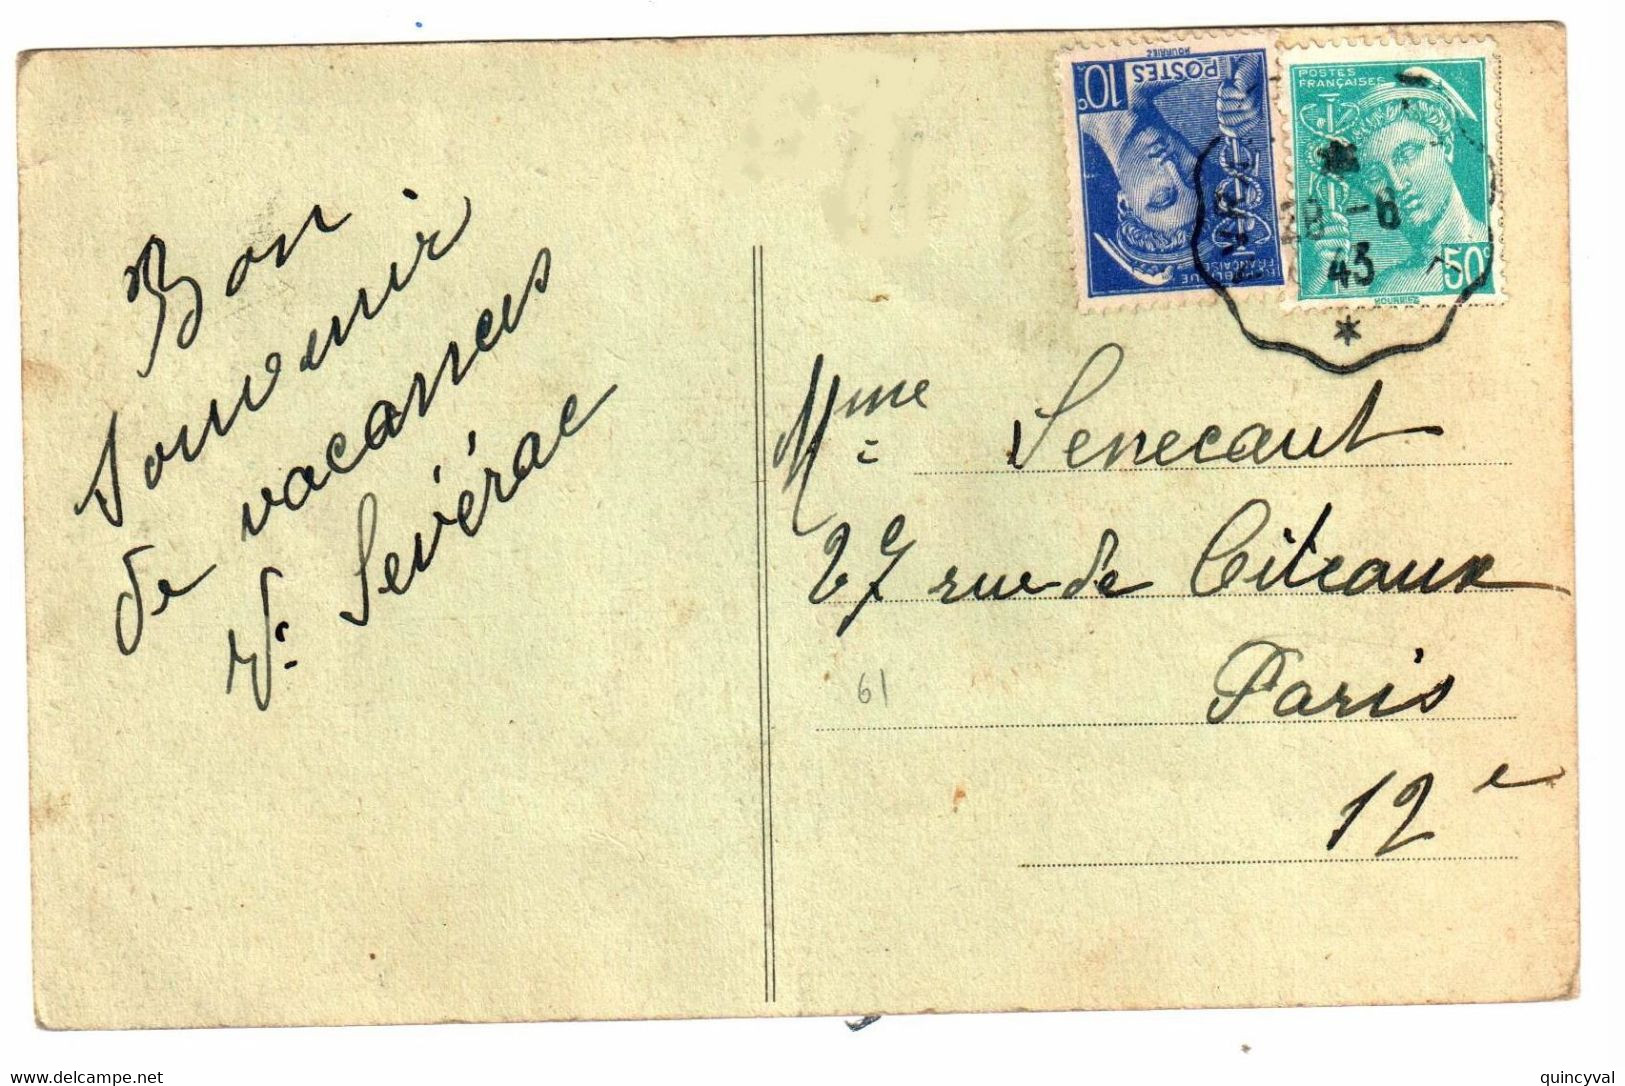 Bon
souvenir
de vacances
Vve Sévérac
10c
POSTES
MOURIEZ
RÉPUBLIQUE
FRANÇAISE
POSTES
FRANÇAISES
50c
MOURIEZ
28 -8
43
Mme Senecaut
27 rue de Citeaux
Paris
12e
61
www.delcampe.net
quincyval